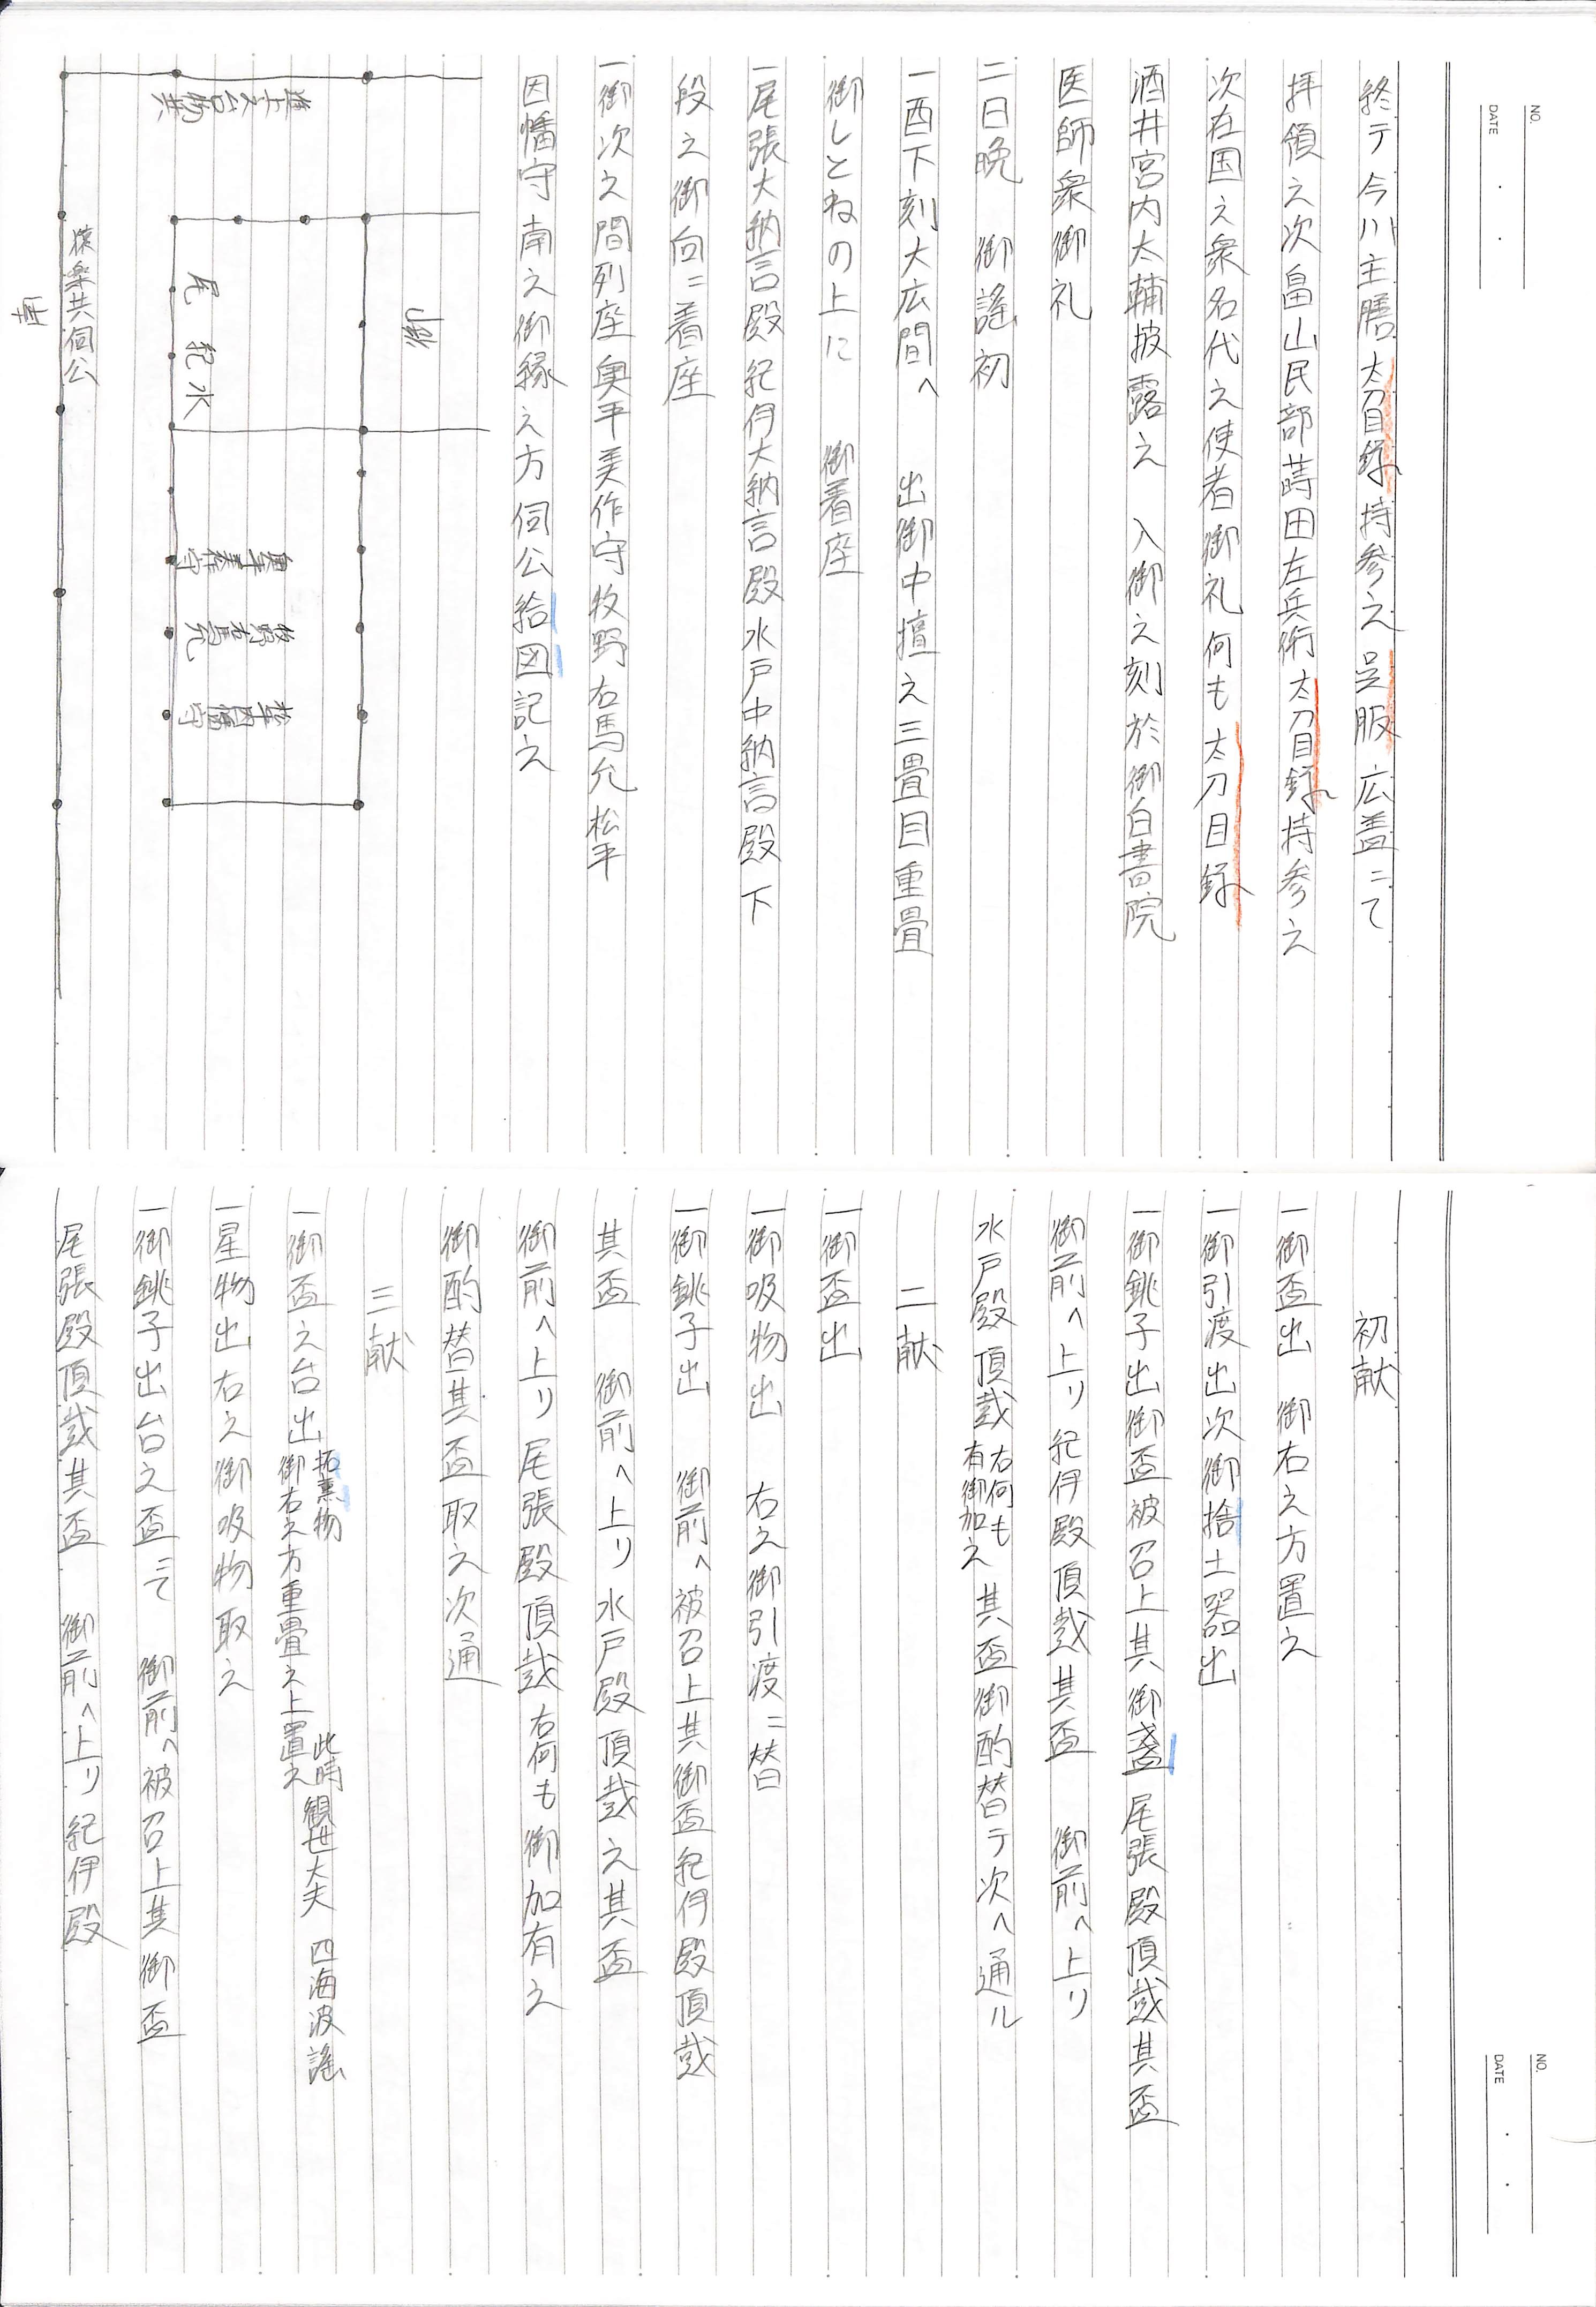 NO.
DATE
終テ今川主膳太刀目録持参之呉服広蓋ニて
拝領之次畠山民部蒔田左兵衛太刀目録持参之
次在国之衆名代之使者御礼何も太刀目録
酒井宮内太輔披露之 入御之刻於御白書院
医師衆御礼
二日晩 御謡初
一酉下刻大広間へ 出御中壇之三畳目重畳
御しとねの上に 御着座
一尾張大納言殿紀伊大納言殿水戸中納言殿下
段之御向ニ着座
一御次之間列座奥平美作守牧野右馬允松平
因幡守南之御縁之方伺公給図記之
進上之台物共
尾 紀 水
奥平美作守
牧野右馬允
松平因幡守
猿楽共伺公
NO.
DATE
初献
一御盃出 御右之方置之
一御引渡出次御捨土器出
一御銚子出御盃被召上其御盞尾張殿頂戴其盃
御前へ上リ紀伊殿頂戴其盃 御前へ上リ
水戸殿頂戴右何も有御加之其盃御酌替テ次へ通ル
二献
一御盃出
一御吸物出 右之御引渡ニ替
一御銚子出 御前へ被召上其御盃紀伊殿頂戴
其盃 御前へ上リ水戸殿頂戴之其盃
御前へ上リ尾張殿頂戴右何も御加有之
御酌替其盃取之次通
三献
一御盃之台出拓熏物御右之方重畳之上置之此時観世大夫 四海波謡
一星物出右之御吸物取之
一御銚子出台之盃ニて 御前へ被召上其御盃
尾張殿頂戴其盃 御前へ上リ紀伊殿